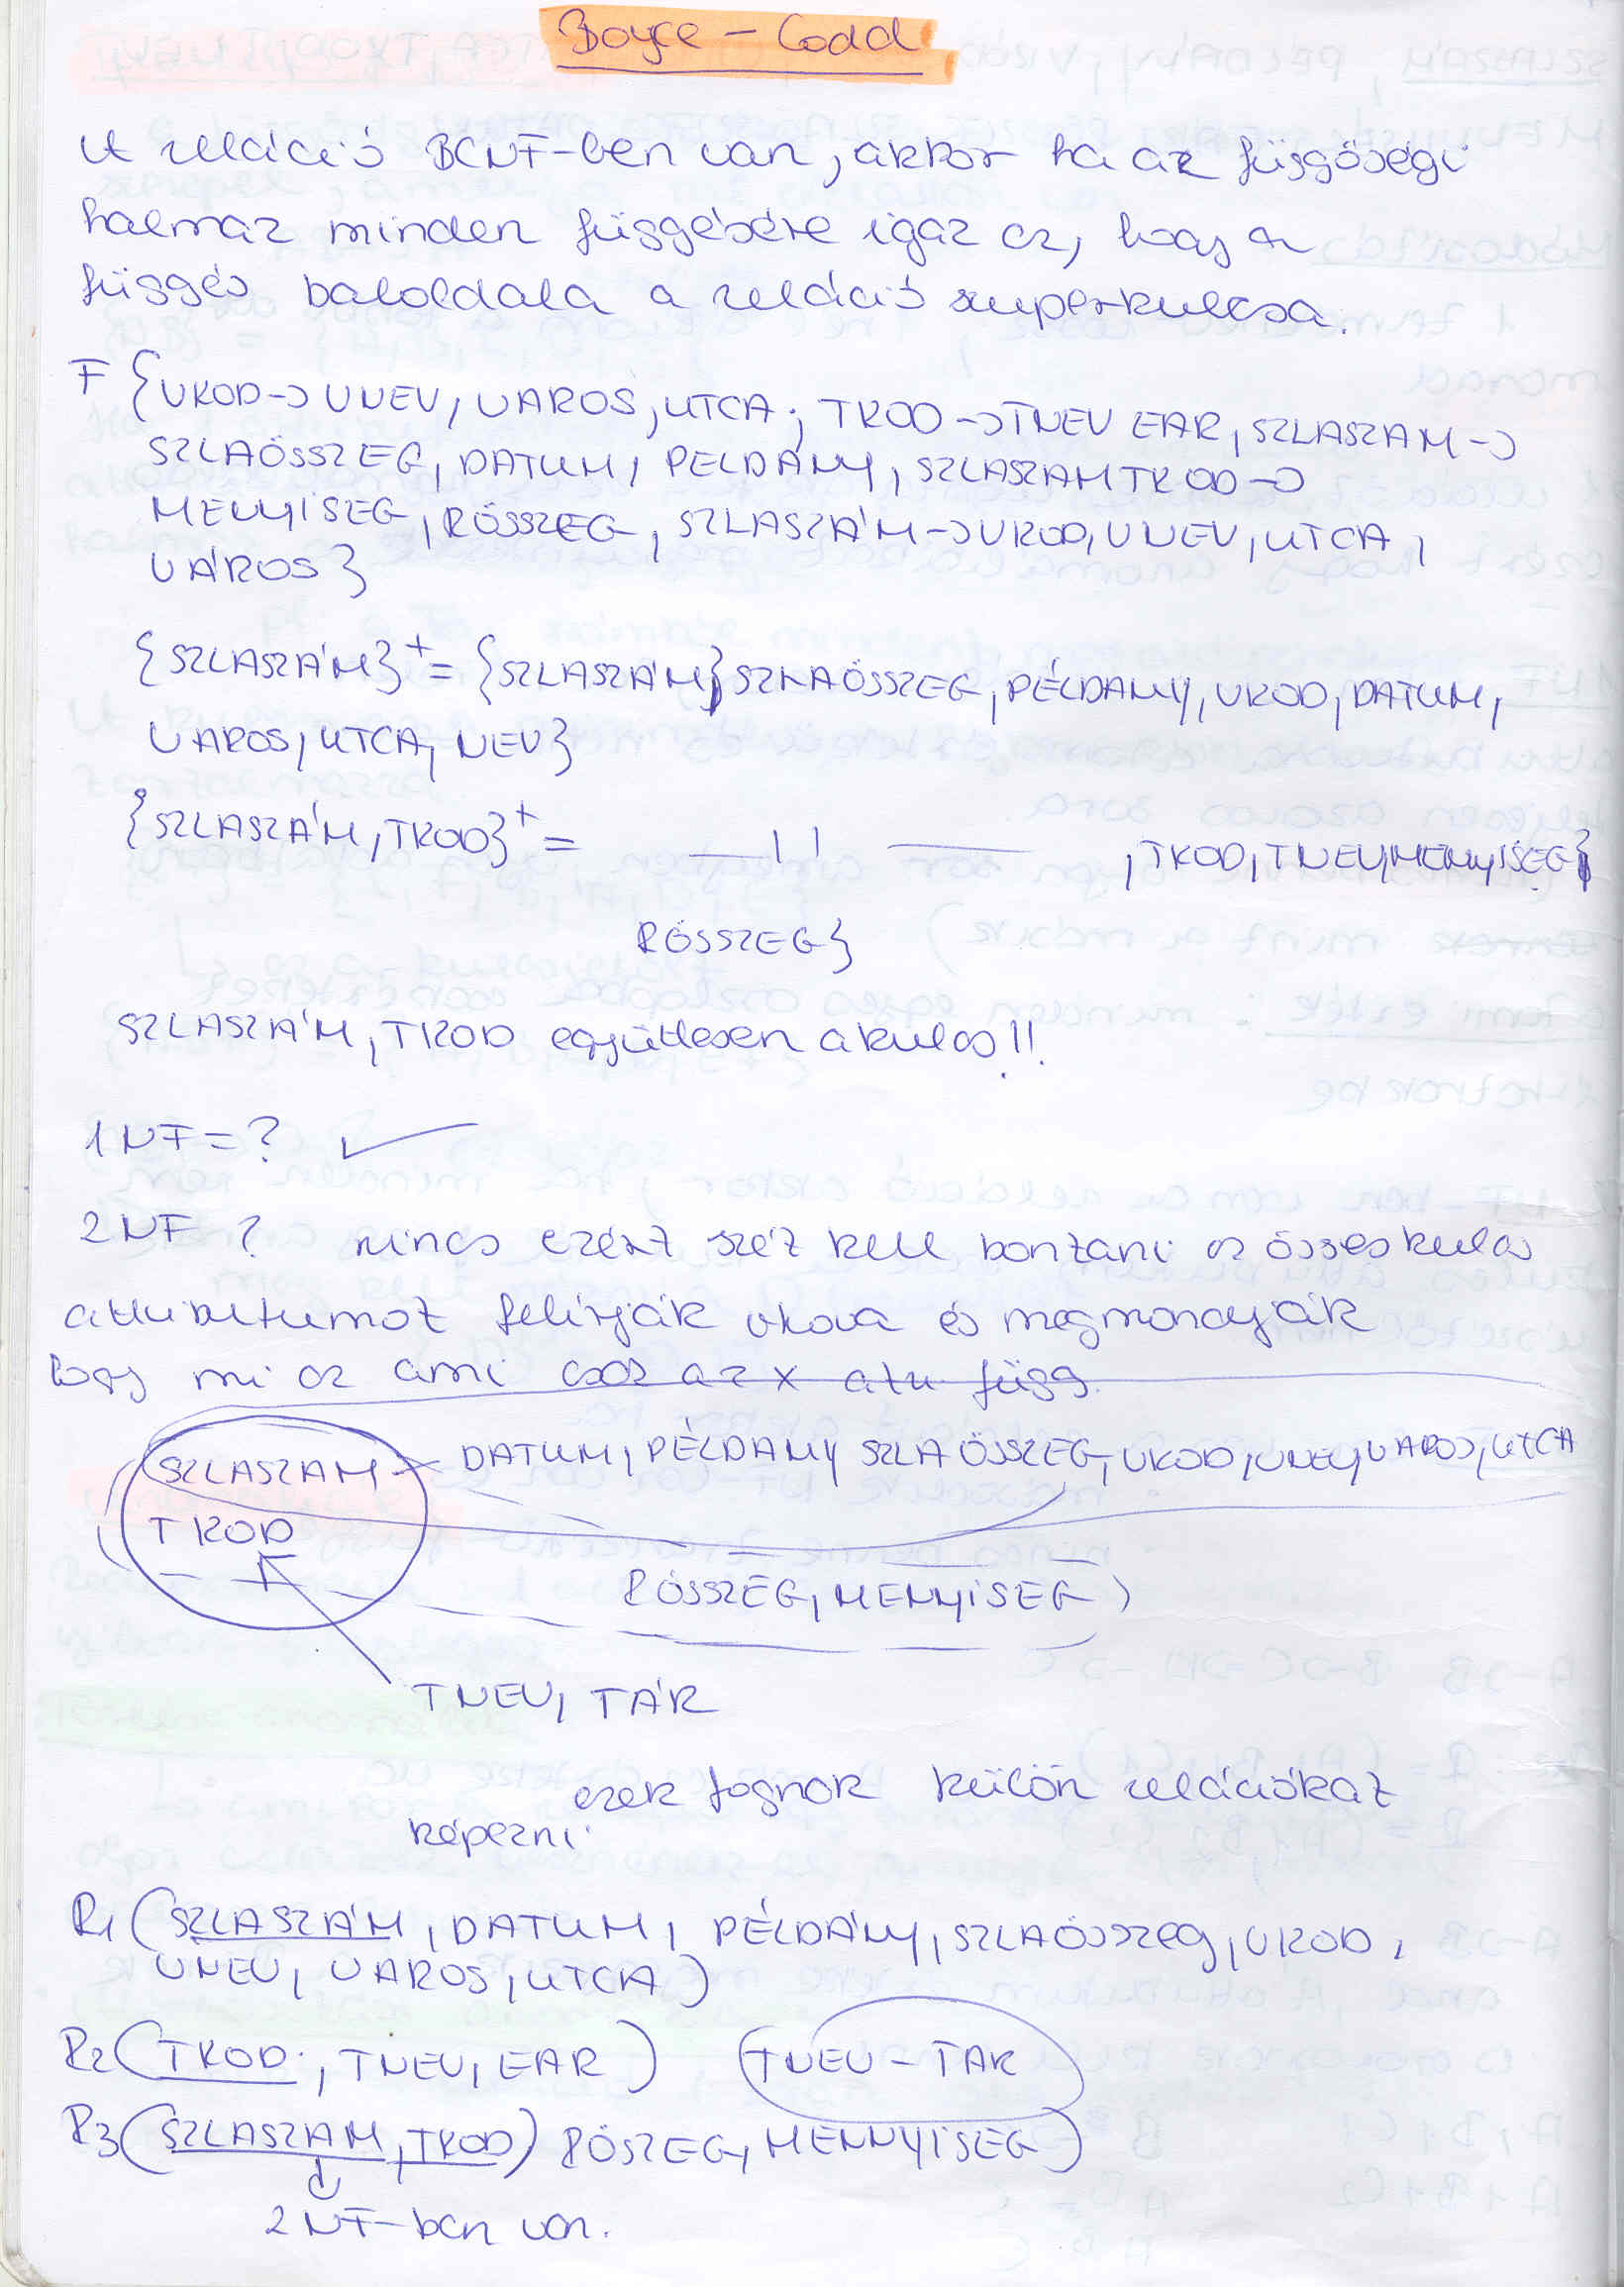 Boyce – Codd
A reláció BCNF-ben van, akkor ha az függőségi
halmaz minden függésére igaz az, hogy a
függés baloldala a reláció szuperkulcsa.
F {VKOD → VNEV, VAROS, UTCA; TKOD → TNEV EAR, SZLASZAM →
SZLAÖSSZEG, DATUM, PELDÁNY, SZLASZAMTKOD →
MENYISEG, RÖSSZEG, SZLASZÁM → VKOD, VNEV, UTCA,
VÁROS}
{SZLASZÁM}+ = {SZLASZÁM} SZLAÖSSZEG, PÉLDANY, VKOD, DATUM,
VAROS, UTCA, NEV}
{SZLASZÁM, TKOD}+ = —— 11 —— , TKOD, TNEV, MENYISEG}
RÖSSZEG}
SZLASZÁM, TKOD együttesen a kulcs!!
1NF = ? ✓
2NF ? nincs ezért szét kell bontani az összes kulcs
attributumot felírják okova és megmondják
hogy mi az ami csak az x atu függ.
SZLASZAM DATUM, PÉLDANY SZLAÖSSZEG, VKOD, VNEV, VAROS, UTCA
TKOD
RÖSSZEG, MENYISEG)
TNEV, TÁR
ezek fognak külön relációkat
képezni
R1 (SZLASZÁM, DATUM, PÉLDÁNY, SZLAÖSSZEG, VKOD,
VNEV, VAROS, UTCA)
R2 (TKOD, TNEV, EAR) (TNEV – TAR
R3 (SZLASZAM, TKOD) RÖSZEG, MENNYISEG)
2NF-ben van.